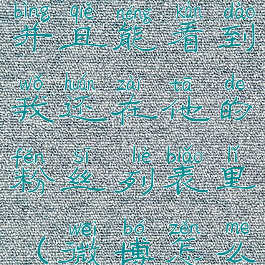 bìng qiě néng kàn dào
并且能看到
wǒ huán zài tā de
我还在他的
fěn sī liè biǎo lǐ
粉丝列表里
wēi bó zěn me
(微博怎么